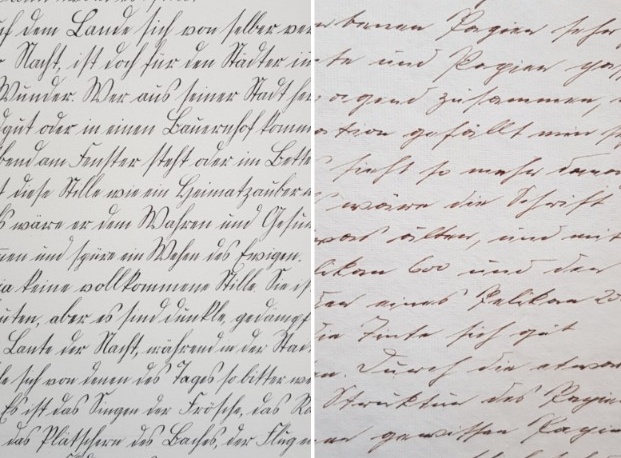 uf dem Lande sich von selber ver
r Nacht, ist doch für den Städter ein
Wunder. Wer aus seiner Stadt her
dgut oder in einen Bauernhof komm
bend am Fenster steht oder im Bette
t diese Stille wie ein Heimatzauber
s wäre er dem Wahren und Gesun
nen und spüre ein Wehen des Ewigen.
ja keine vollkommene Stille. Sie is
uten, aber es sind dunkle, gedämpf
Laute der Nacht, während in der Stad
le sich von denen des Tages so bitter
Es ist das Singen der Frösche, das
das Plätschern des Baches, der Flug
benen Papier sehr
te und Papier
agend zusammen,
ation gefällt mir
sieht so mehr
wäre die Schrift
was älter, und mit
likan 600 und der
der eines Pelikan 20
die Tinte sich gut
n. Durch die etwas
Struktur des Papie
gewissen Papie